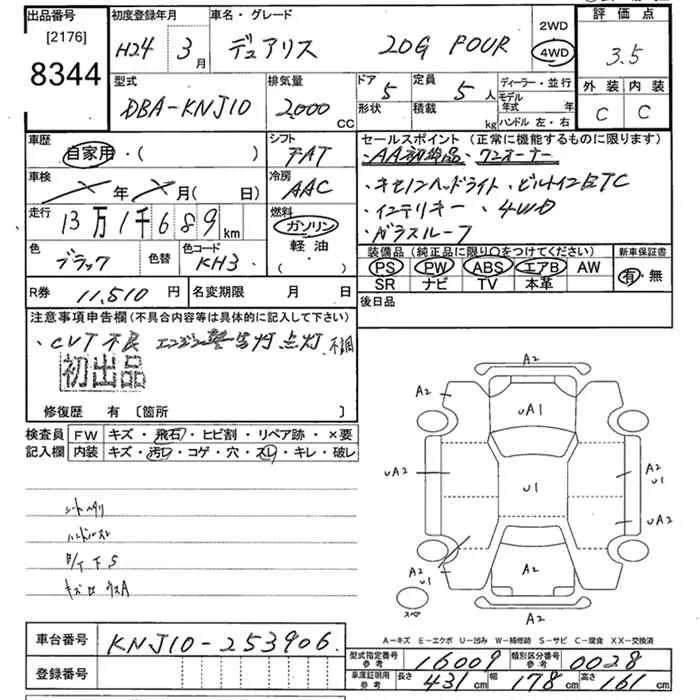 出品番号 初度登録年月 車名・グレード 2WD 評価点
[2176] H24 3月 デュアリス 20G FOUR 4WD 3.5
8344
型式 排気量 ドア 定員 ディーラー・並行 外装 内装
DBA-KNJ10 2000 CC 5 5人 モデル年式 年 C C
形状 積載 kg ハンドル 左・右
車歴 シフト セールスポイント(正常に機能するものに限ります)
自家用・( ) FAT AA初出品、ワンオーナー
車検 年 月(日) 冷房 AAC ・キセノンヘッドライト・ビルトインETC
走行 13万1千689km 燃料 ガソリン ・インテリキー・4WD
軽油 ・ガラスルーフ
・( )
色 ブラック 色替 色コード KH3 装備品(純正品に限り○をつけてください) 新車保証書
PS PW ABS エアB AW 有・無
SR ナビ TV 本革
R券 11,510円 名変期限 月 日 後日品
注意事項申告欄(不具合内容等は具体的に記入して下さい)
・CVT不良 エンジン警告灯点灯、不調
初出品
修復歴 有〔箇所 〕
検査員 FW キズ・飛石・ヒビ割・リペア跡・×要
記入欄 内装 キズ・汚レ・コゲ・穴・スレ・キレ・破レ
A2
A2 UA1
UA2 U1 A2
U1
UA2
A2 A2 A2
U1 U1
スペア A2
シートヘタリ
F/T下S
A-キズ E-エクボ U-凹み W-補修跡 S-サビ C-腐食 XX-交換済
車台番号 KNJ10-253906
型式指定番号 参考 16009 類別区分番号 参考 0028
登録番号 車庫証明用 参考 長さ 431cm 幅 178cm 高さ 161cm